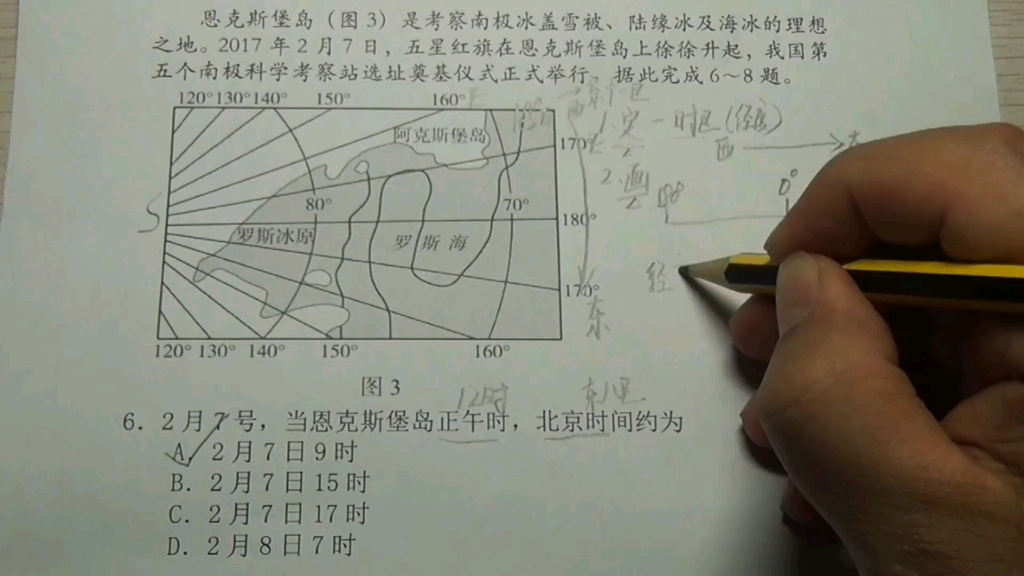 恩克斯堡岛（图3）是考察南极冰盖雪被、陆缘冰及海冰的理想
之地。2017年2月7日，五星红旗在恩克斯堡岛上徐徐升起，我国第
五个南极科学考察站选址奠基仪式正式举行。据此完成6～8题。
120°130°140° 150° 160°
阿克斯堡岛
170°
80° 70° 180°
罗斯冰原 罗斯海
170°
120° 130° 140° 150° 160°
图3
S
东
1.定一时区(经度)
西
2.画
180° 0°
经
12时
6．2月7号，当恩克斯堡岛正午时，北京时间约为
A．2月7日9时
B．2月7日15时
C．2月7日17时
D．2月8日7时